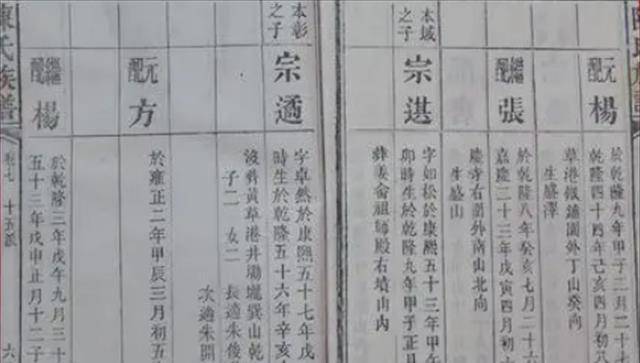 元配
楊
於乾隆九年甲子二月二十
乾隆四十四年己亥四月
草港舖園外丁山癸向
生盛澤
繼配
張
於乾隆八年癸亥七月二
嘉慶二十三年戊寅四月初
慶寺右嶺外南山北向
生盛山
本域之子
宗湛
字如松於康熙五十三年甲午
卯時生於乾隆九年甲子正月
葬姜侖祖師殿右墳山內
本彰之子
宗遹
字卓然於康熙五十七年戊
時生於乾隆五十六年辛亥
葬黃草港井塝壠巽山乾
子二 女二 長適朱俊
次適朱開
元配
方
於雍正二年甲辰三月初五
繼配
楊
於乾隆三年戊午九月三十
五十三年戊申正月十二
陳氏族譜
卷七 十五派
六